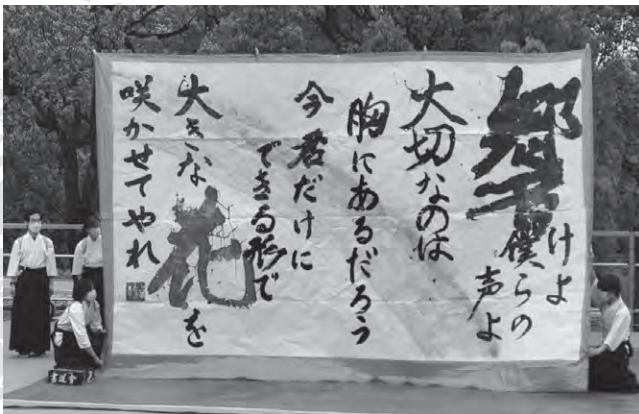 響けよ僕らの
声よ
大切なのは
胸にあるだろう
今君だけに
できる形で
大きな花を
咲かせてやれ